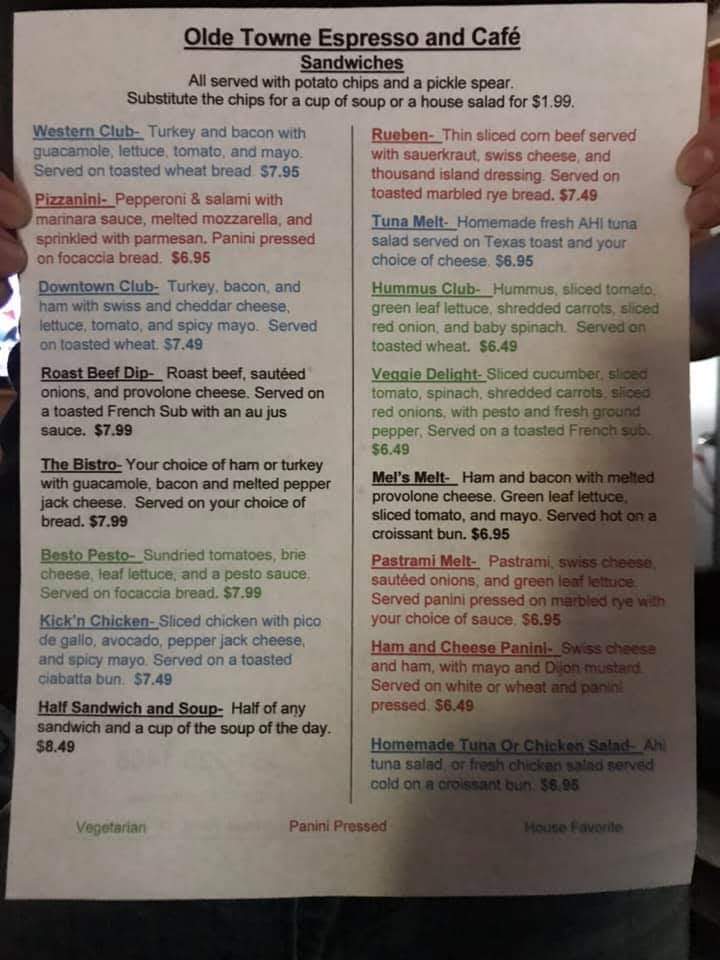 Olde Towne Espresso and Café
Sandwiches
All served with potato chips and a pickle spear.
Substitute the chips for a cup of soup or a house salad for $1.99.
Western Club- Turkey and bacon with
guacamole, lettuce, tomato, and mayo.
Served on toasted wheat bread. $7.95
Pizzanini- Pepperoni & salami with
marinara sauce, melted mozzarella, and
sprinkled with parmesan. Panini pressed
on focaccia bread. $6.95
Downtown Club- Turkey, bacon, and
ham with swiss and cheddar cheese,
lettuce, tomato, and spicy mayo. Served
on toasted wheat. $7.49
Roast Beef Dip- Roast beef, sautéed
onions, and provolone cheese. Served on
a toasted French Sub with an au jus
sauce. $7.99
The Bistro- Your choice of ham or turkey
with guacamole, bacon and melted pepper
jack cheese. Served on your choice of
bread. $7.99
Besto Pesto- Sundried tomatoes, brie
cheese, leaf lettuce, and a pesto sauce.
Served on focaccia bread. $7.99
Kick'n Chicken- Sliced chicken with pico
de gallo, avocado, pepper jack cheese,
and spicy mayo. Served on a toasted
ciabatta bun. $7.49
Half Sandwich and Soup- Half of any
sandwich and a cup of the soup of the day.
$8.49
Rueben- Thin sliced corn beef served
with sauerkraut, swiss cheese, and
thousand island dressing. Served on
toasted marbled rye bread. $7.49
Tuna Melt- Homemade fresh AHI tuna
salad served on Texas toast and your
choice of cheese. $6.95
Hummus Club- Hummus, sliced tomato,
green leaf lettuce, shredded carrots, sliced
red onion, and baby spinach. Served on
toasted wheat. $6.49
Veggie Delight- Sliced cucumber, sliced
tomato, spinach, shredded carrots, sliced
red onions, with pesto and fresh ground
pepper, Served on a toasted French sub.
$6.49
Mel's Melt- Ham and bacon with melted
provolone cheese. Green leaf lettuce,
sliced tomato, and mayo. Served hot on a
croissant bun. $6.95
Pastrami Melt- Pastrami, swiss cheese,
sautéed onions, and green leaf lettuce.
Served panini pressed on marbled rye with
your choice of sauce. $6.95
Ham and Cheese Panini- Swiss cheese
and ham, with mayo and Dijon mustard.
Served on white or wheat and panini
pressed. $6.49
Homemade Tuna Or Chicken Salad- Ahi
tuna salad, or fresh chicken salad served
cold on a croissant bun. $6.95
Vegetarian
Panini Pressed
House Favorite